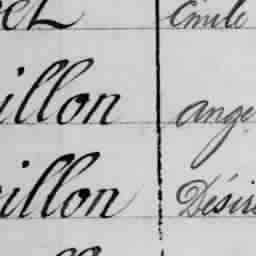 el Emile
illon ange
illon Désiré